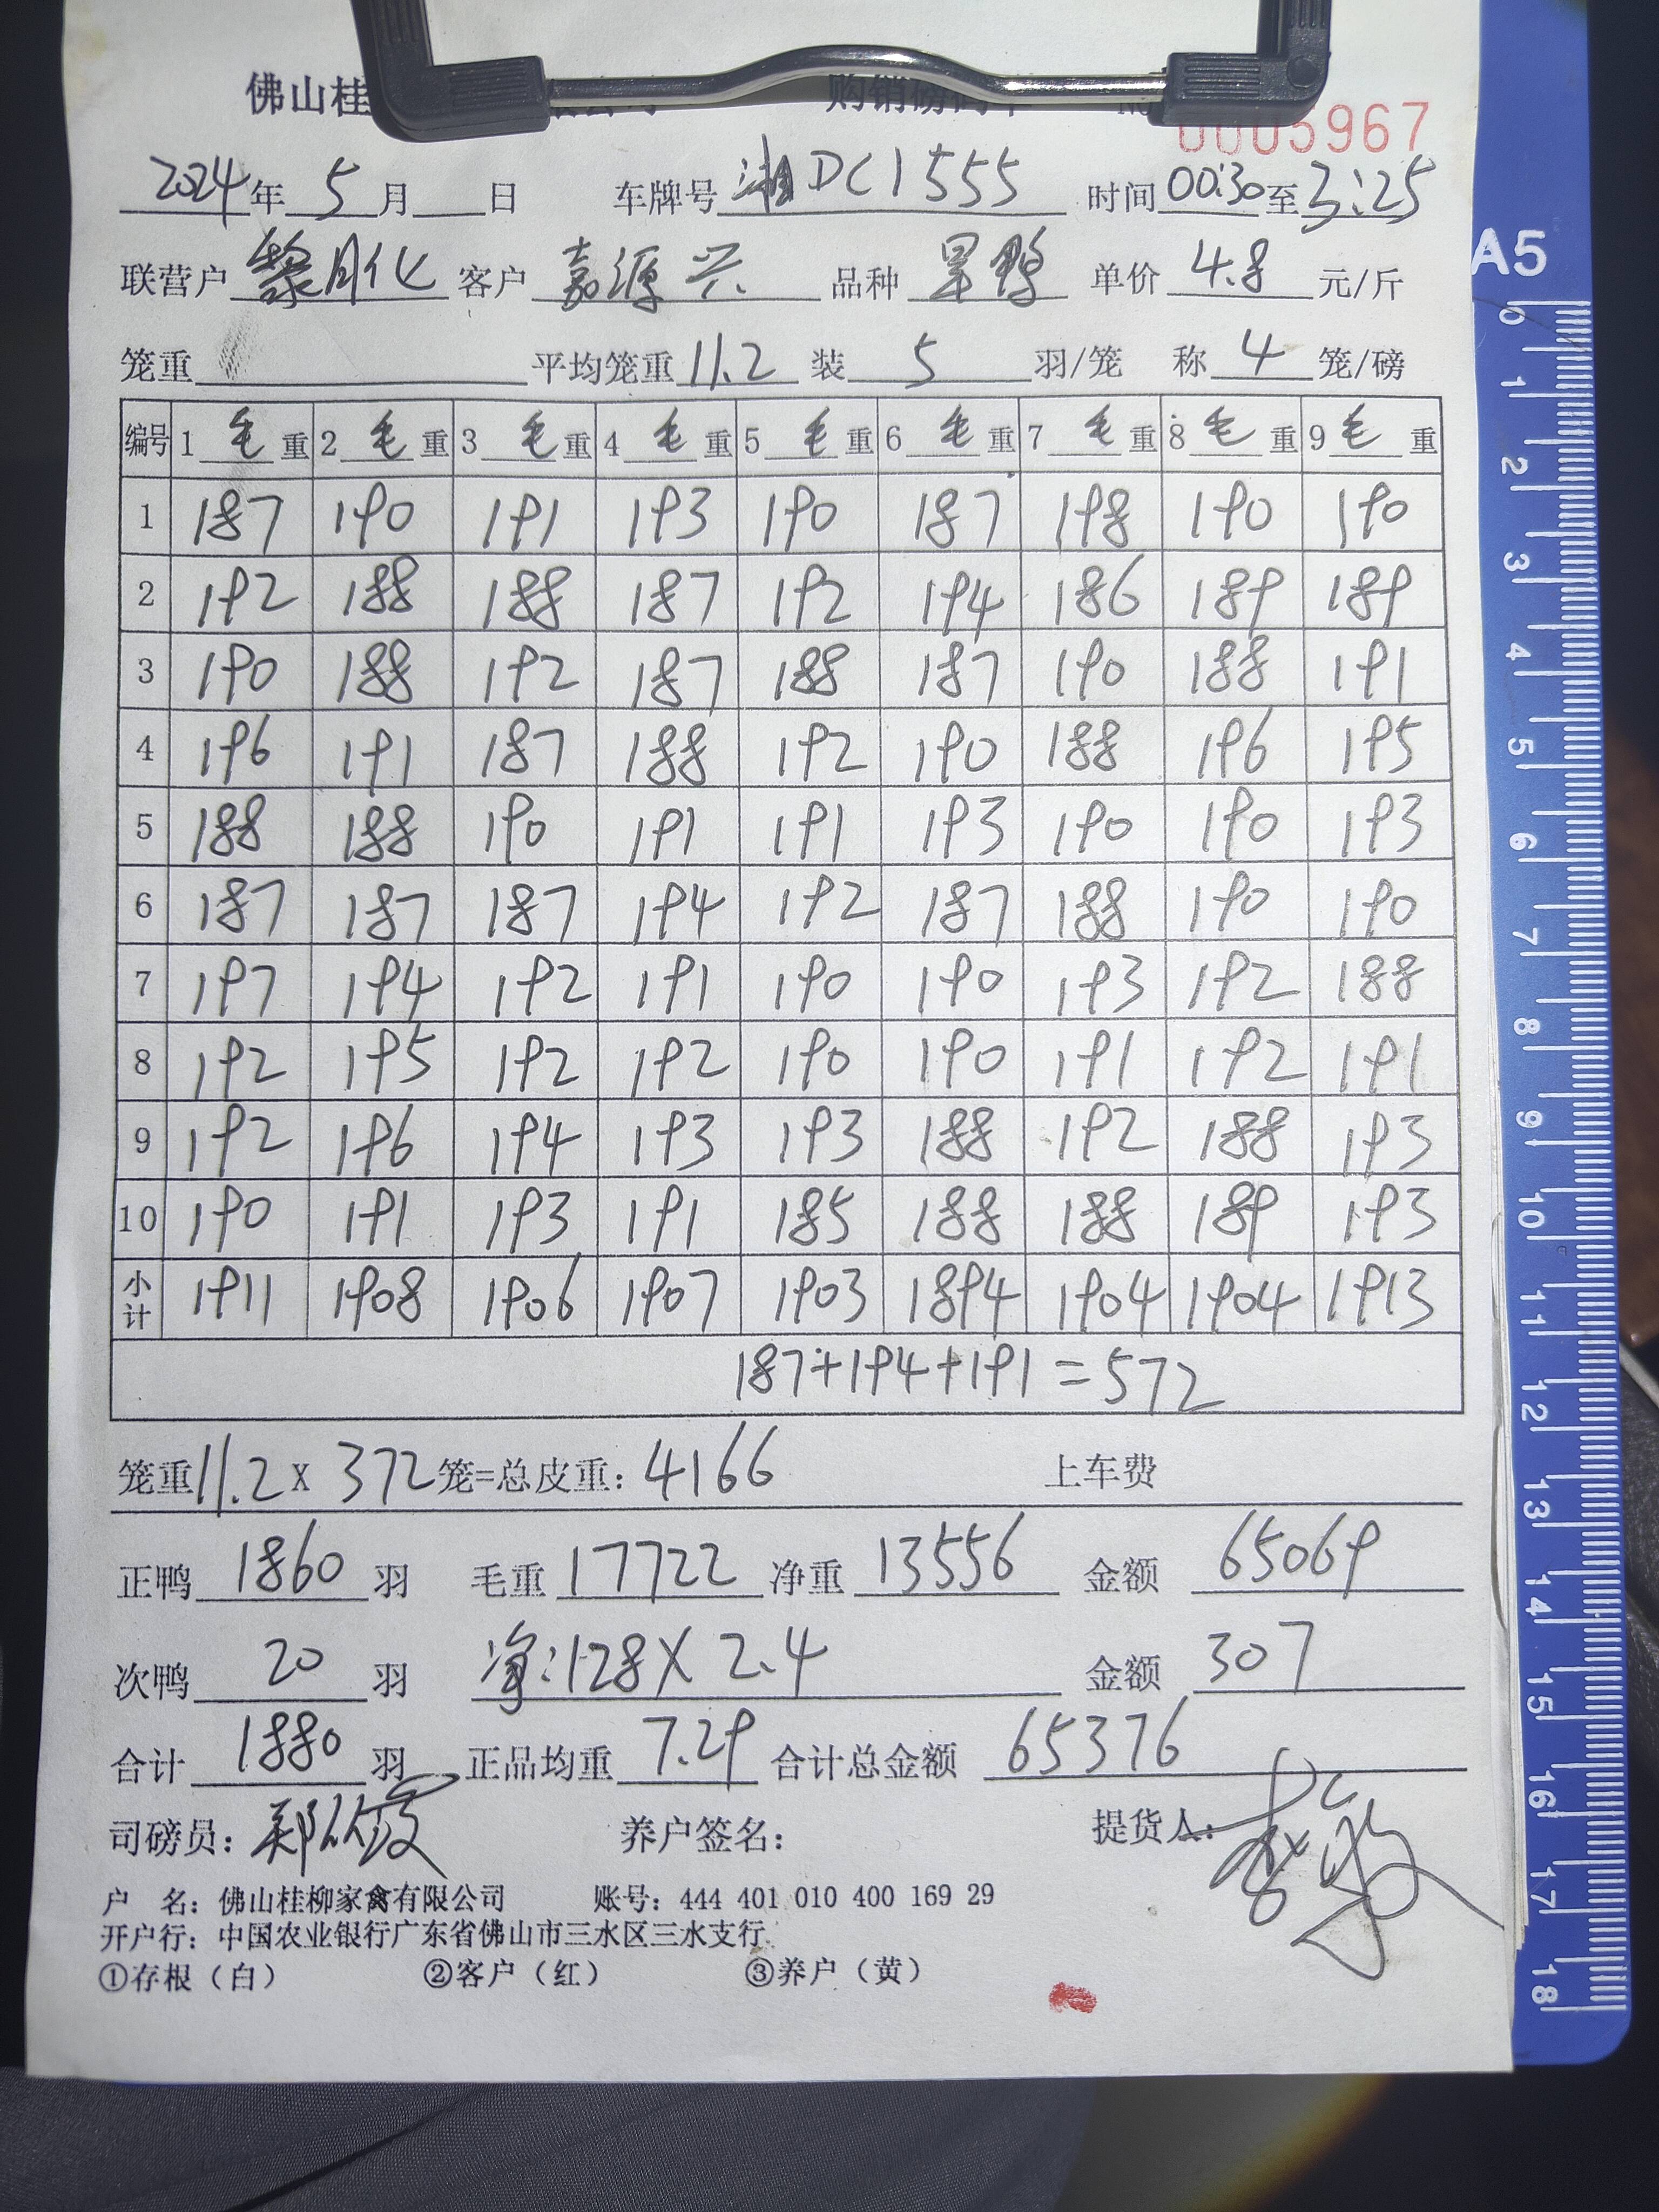 佛山桂 购销磅码单 0005967
2024年5月 日 车牌号 湘DC1555 时间00:30至3:25
联营户 黎月化 客户 嘉源兴 品种 旱鸭 单价 4.8 元/斤
笼重 平均笼重11.2 装 5 羽/笼 称 4 笼/磅
编号 1 毛 重 2 毛 重 3 毛 重 4 毛 重 5 毛 重 6 毛 重 7 毛 重 8 毛 重 9 毛 重
1 187 190 191 193 190 187 198 190 190
2 192 188 188 187 192 194 186 189 189
3 190 188 192 187 188 187 190 188 191
4 196 191 187 188 192 190 188 196 195
5 188 188 190 191 191 193 190 190 193
6 187 187 187 194 192 187 188 190 190
7 197 194 192 191 190 190 193 192 188
8 192 195 192 192 190 190 191 192 191
9 192 196 194 193 193 188 192 188 193
10 190 191 193 191 185 188 188 189 193
小计 1911 1908 1906 1907 1903 1894 1904 1904 1913
187+194+191=572
笼重11.2x 372笼=总皮重：4166 上车费
正鸭 1860 羽 毛重 17722 净重 13556 金额 65069
次鸭 20 羽 净：128X 2.4 金额 307
合计 1880 羽 正品均重 7.29 合计总金额 65376
司磅员： 养户签名： 提货人：
户 名：佛山桂柳家禽有限公司 账号：444 401 010 400 169 29
开户行：中国农业银行广东省佛山市三水区三水支行
①存根（白） ②客户（红） ③养户（黄）
A5
0 1 2 3 4 5 6 7 8 9 10 11 12 13 14 15 16 17 18